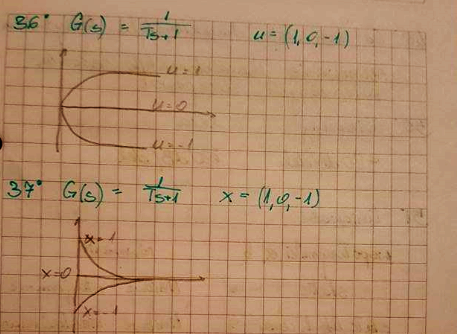 36° G(s) = 1/Ts+1 u = (1,0,-1)
u=1
u=0
u=-1
37° G(s) = 1/Ts+1 x = (1,0,-1)
x=1
x=0
x=-1